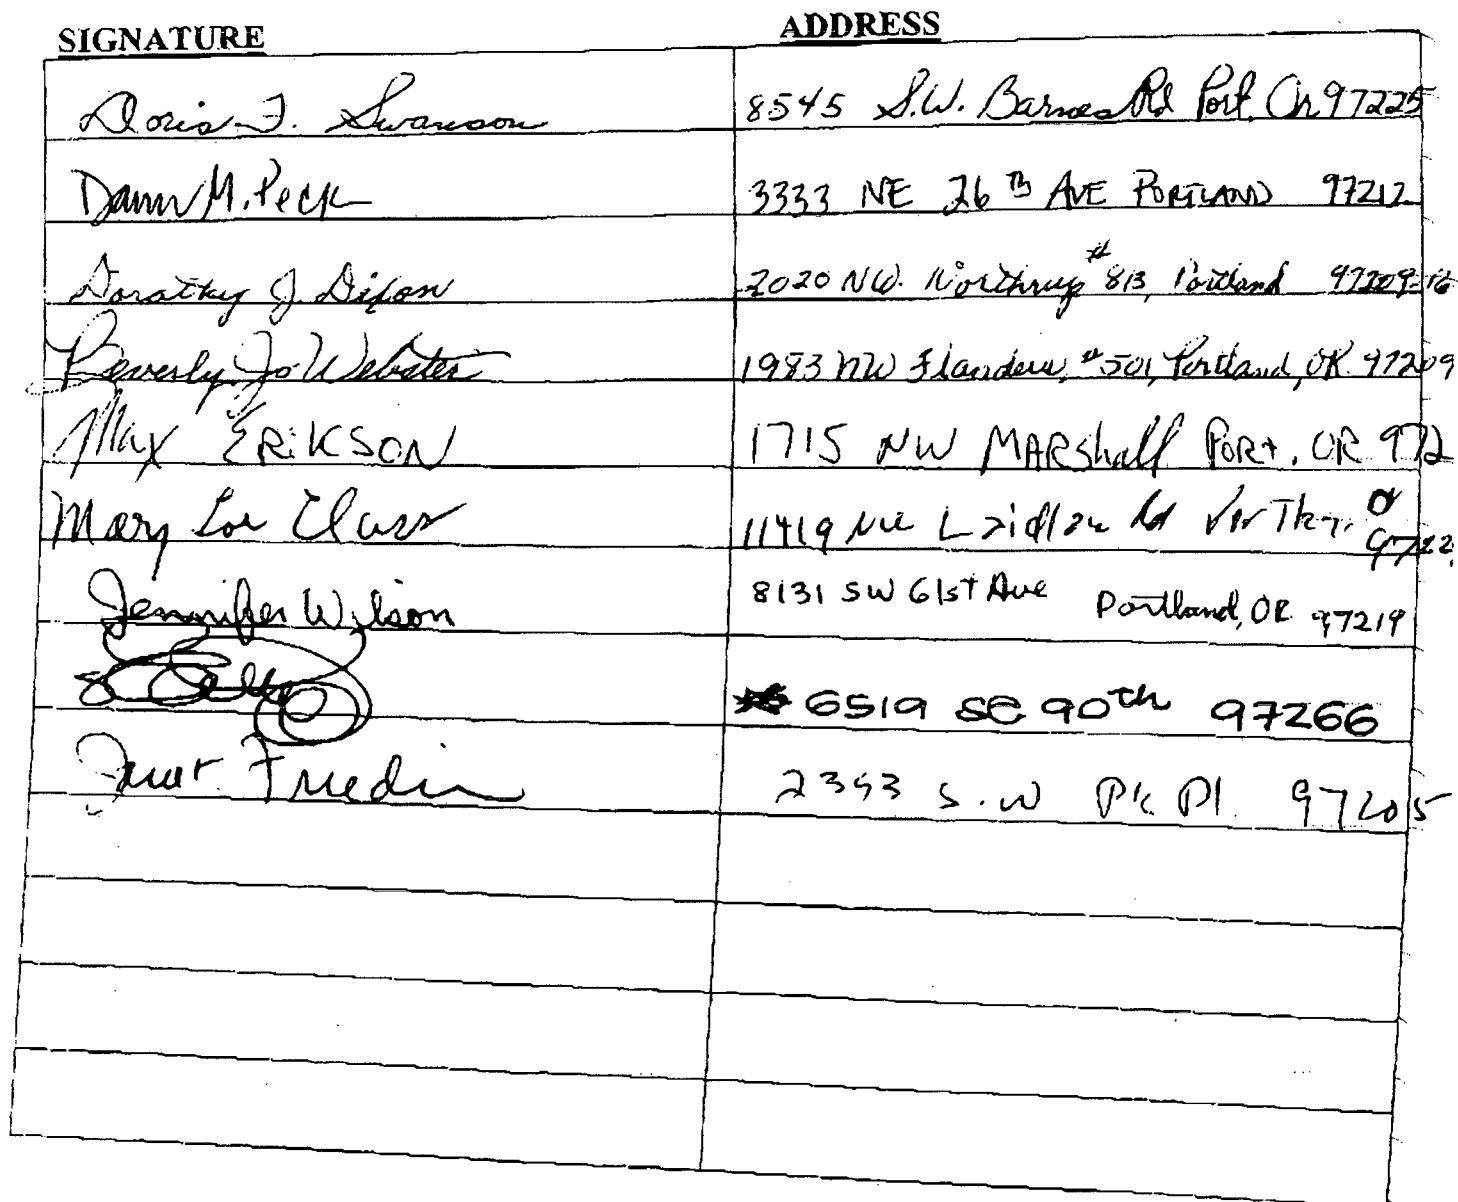 SIGNATURE ADDRESS
Doris F. Swanson 8545 S.W. Barnes Rd Port. Or 97225
M. Peck 3333 NE 26th AVE PORTLAND 97212
Dorothy J. Dixon 2020 NW. Northrup #813, Portland 97209-16
Beverly Jo Webster 1983 NW Flanders, #501, Portland, OR 97209
Max ERIKSON 1715 NW MARshall PORt, OR 972
Mary Lou 11419 NW Laidlaw Rd
Jennifer Wilson 8131 SW 61st Ave Portland, OR 97219
6519 SE 90th 97266
2343 S.W Pk Pl 97205